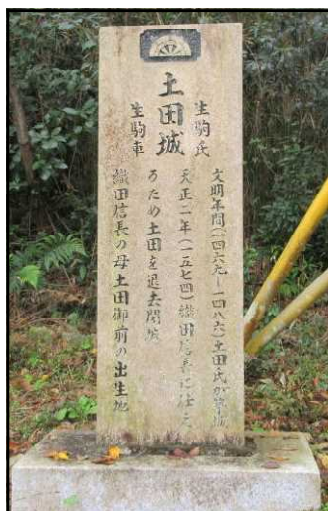 土田城
生駒氏
生駒車
文明年間(一四六九ー一四八六)土田氏が築城
天正二年(一五七四)織田信長に仕え
るため土田を退去開城
織田信長の母土田御前の出生地